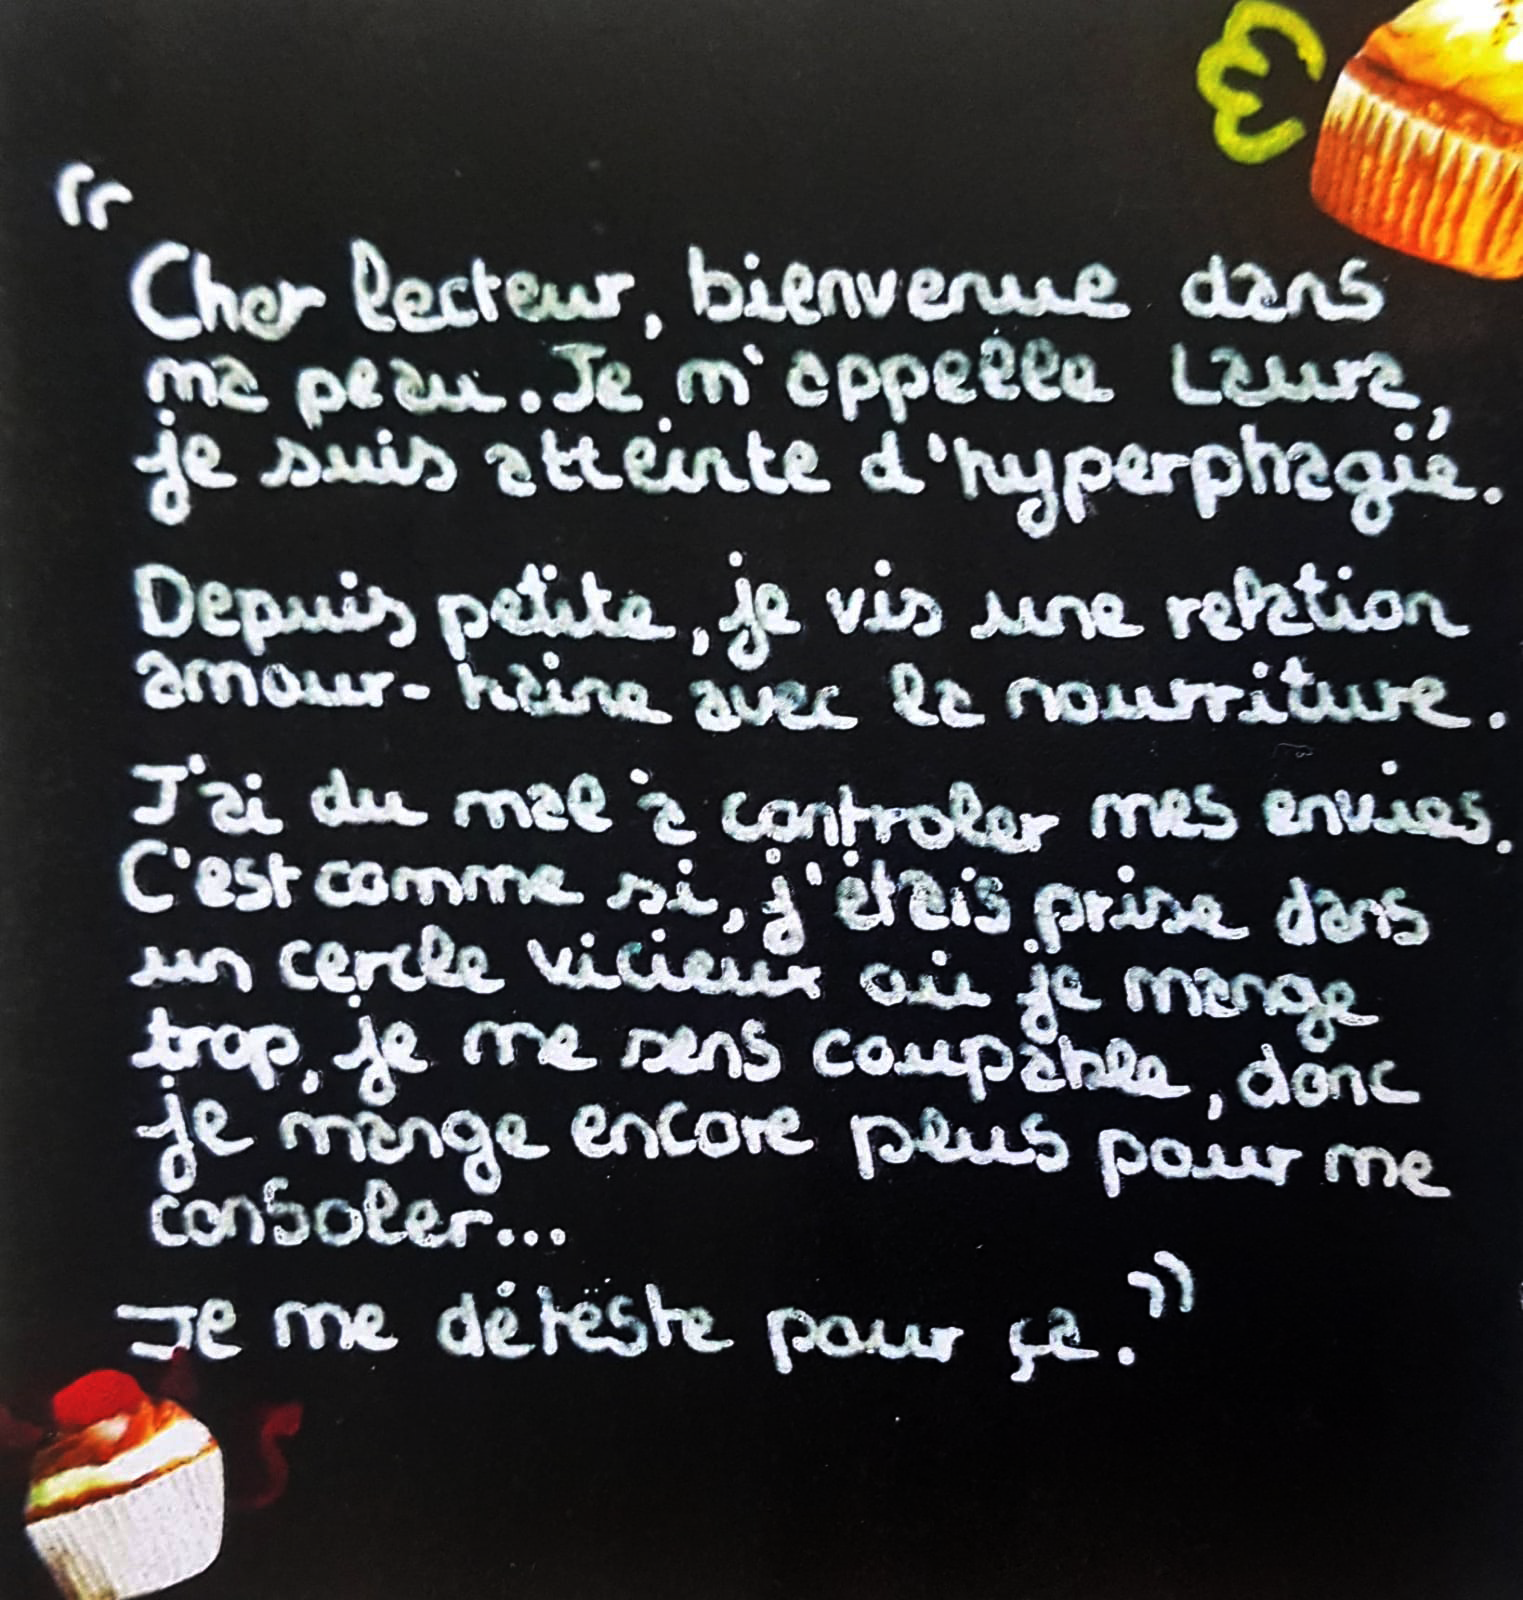 “
Cher lecteur, bienvenue dans
ma peau. Je m'appelle Laura,
je suis atteinte d'hyperphagie.
Depuis petite, je vis une relation
amour-haine avec la nourriture.
J'ai du mal à controler mes envies.
C'est comme si, j'étais prise dans
un cercle vicieux où je mange
trop, je me sens coupable, donc
je mange encore plus pour me
consoler...
Je me déteste pour ça.”